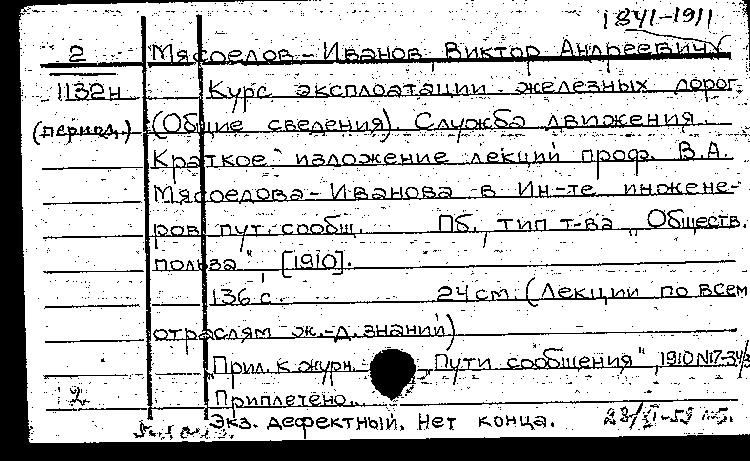 1841-1911
2 Мясоедов-Иванов, Виктор Андреевич
1132н Курс эксплоатации железных дорог.
(период.) (Общие сведения). Служба движения.
Краткое изложение лекций проф. В.А.
Мясоедова-Иванова в Ин-те инжене-
ров пут. сообщ. Пб., тип т-ва „Обществ.
польза", [1910].
136 с. 24см. (Лекции по всем
отраслям ж.-д. знаний)
„Прил. к журн. „Пути сообщения", 1910 №17-34/
2 Приплетено.
Экз. дефектный. Нет конца. 28/VI-59